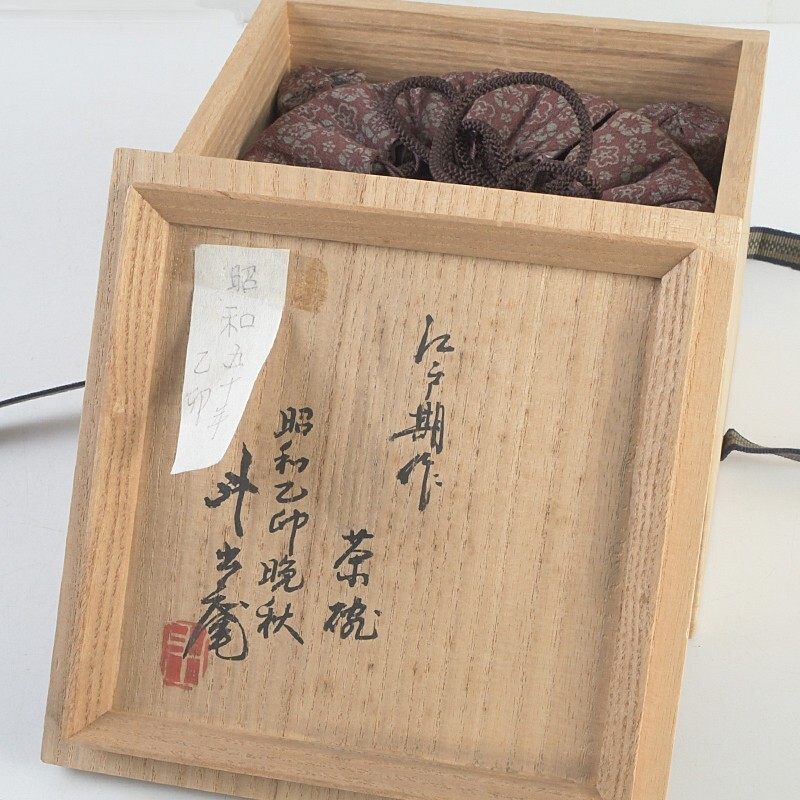 江戸期作
茶碗
昭和乙卯晩秋
斗出庵
昭和五十年
乙卯